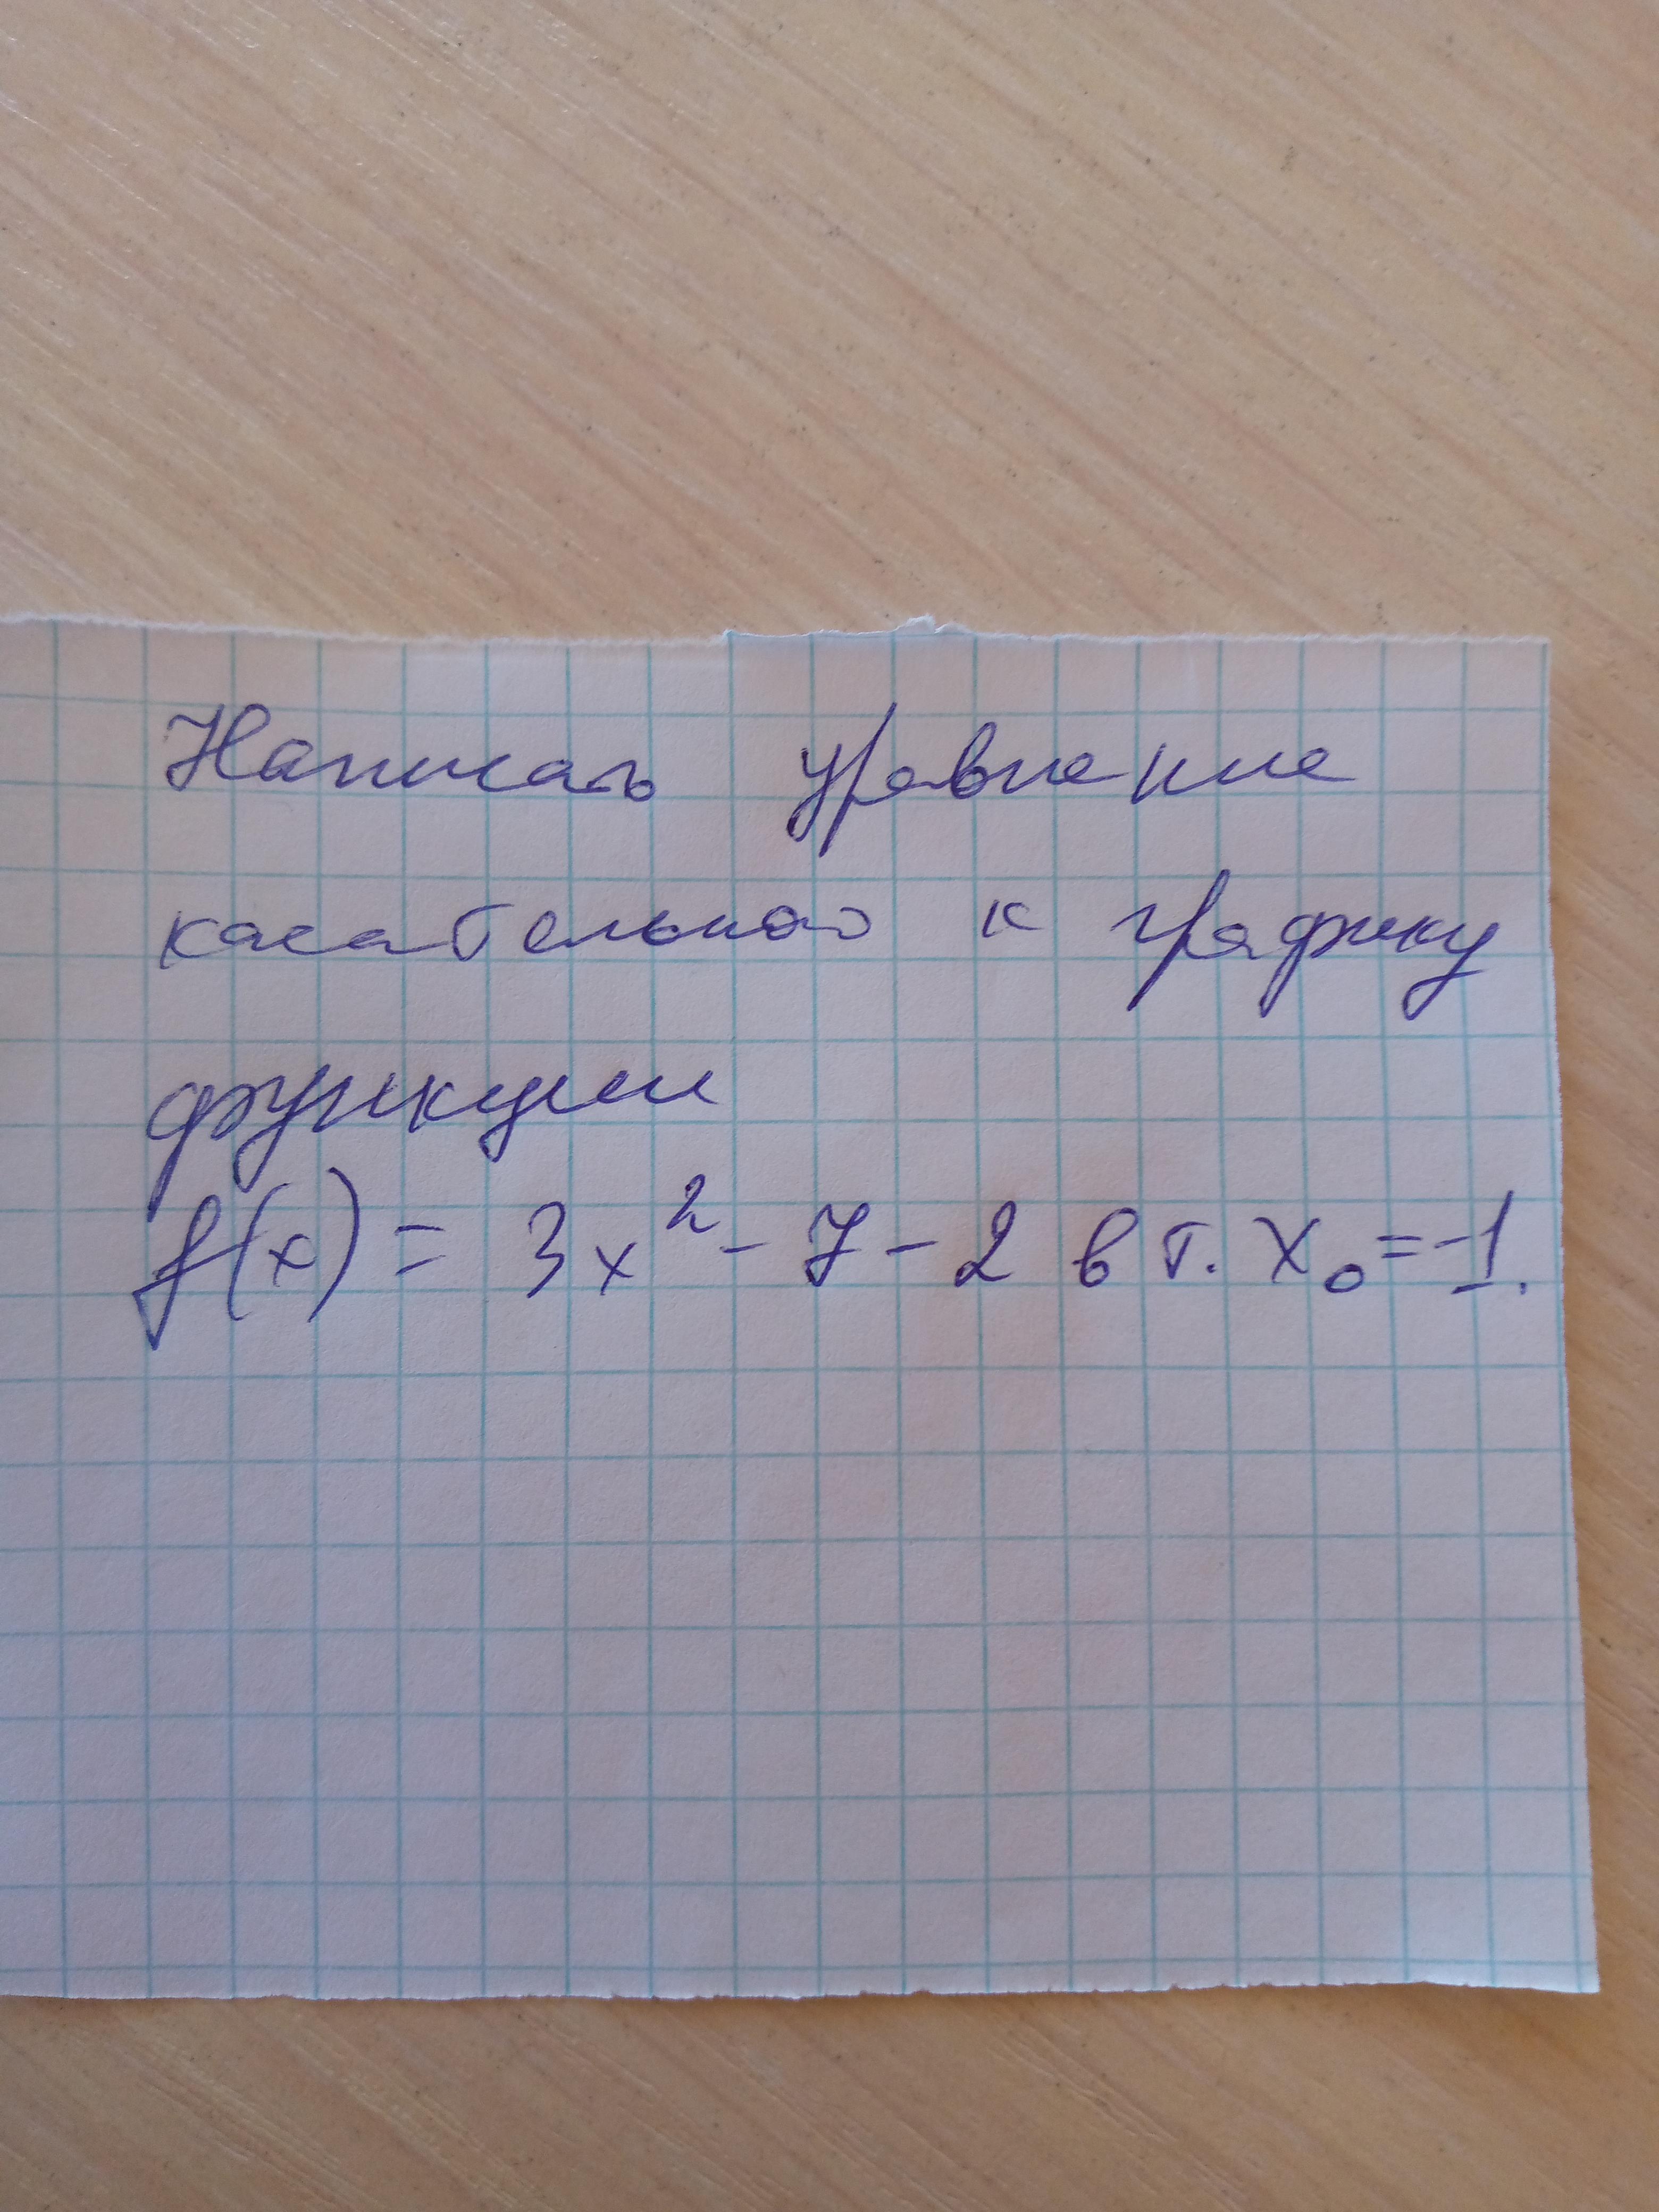 Написать уравнение
касательной к графику
функции
f(x) = 3x² - 7 - 2 в т. x₀ = -1.